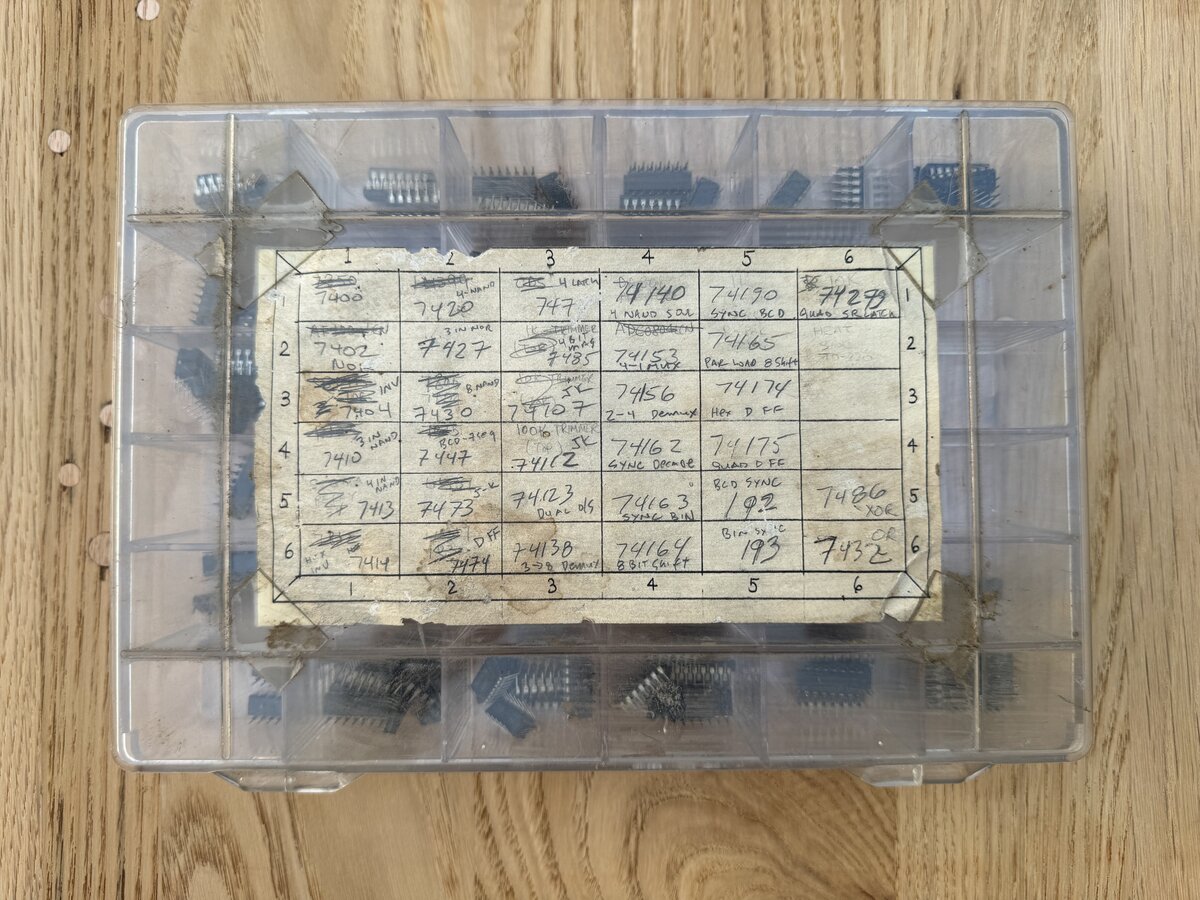 1 2 3 4 5 6
1
7400
4-NAND
7420
4 LATCH
747
74140
74190
SYNC BCD
74279
QUAD SR LATCH
1
2
7402
3 IN NOR
7427
TRIMMER
4 BIT
7485
74153
4-1 MUX
74165
PAR LOAD 8 Shift
HEAT
2
3
INV
7404
8 NAND
7430
JK
74107
74156
2-4 Demux
74174
Hex D FF
3
4
3 IN
NAND
7410
BCD-7seg
7447
100K TRIMMER
JK
74162
SYNC Decade
74175
QUAD D FF
4
5
4 IN
NAND
7413
J-K
7473
74123
DUAL O/S
74163
SYNC BIN
BCD SYNC
192
7486
XOR
5
6
INV
7414
D FF
7474
74138
3→8 Demux
74164
8 Bit Shift
193
OR
7432
6
1 2 3 4 5 6